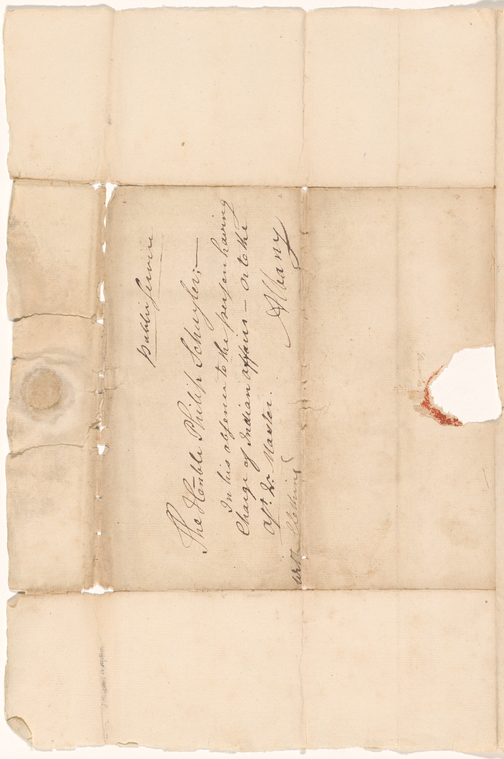 Public Service
The Honble Philip Schuyler;—
In his absence to the person having
Charge of Indian affairs — or to the
Asst. Qr. Master.
Albany
With Clothing